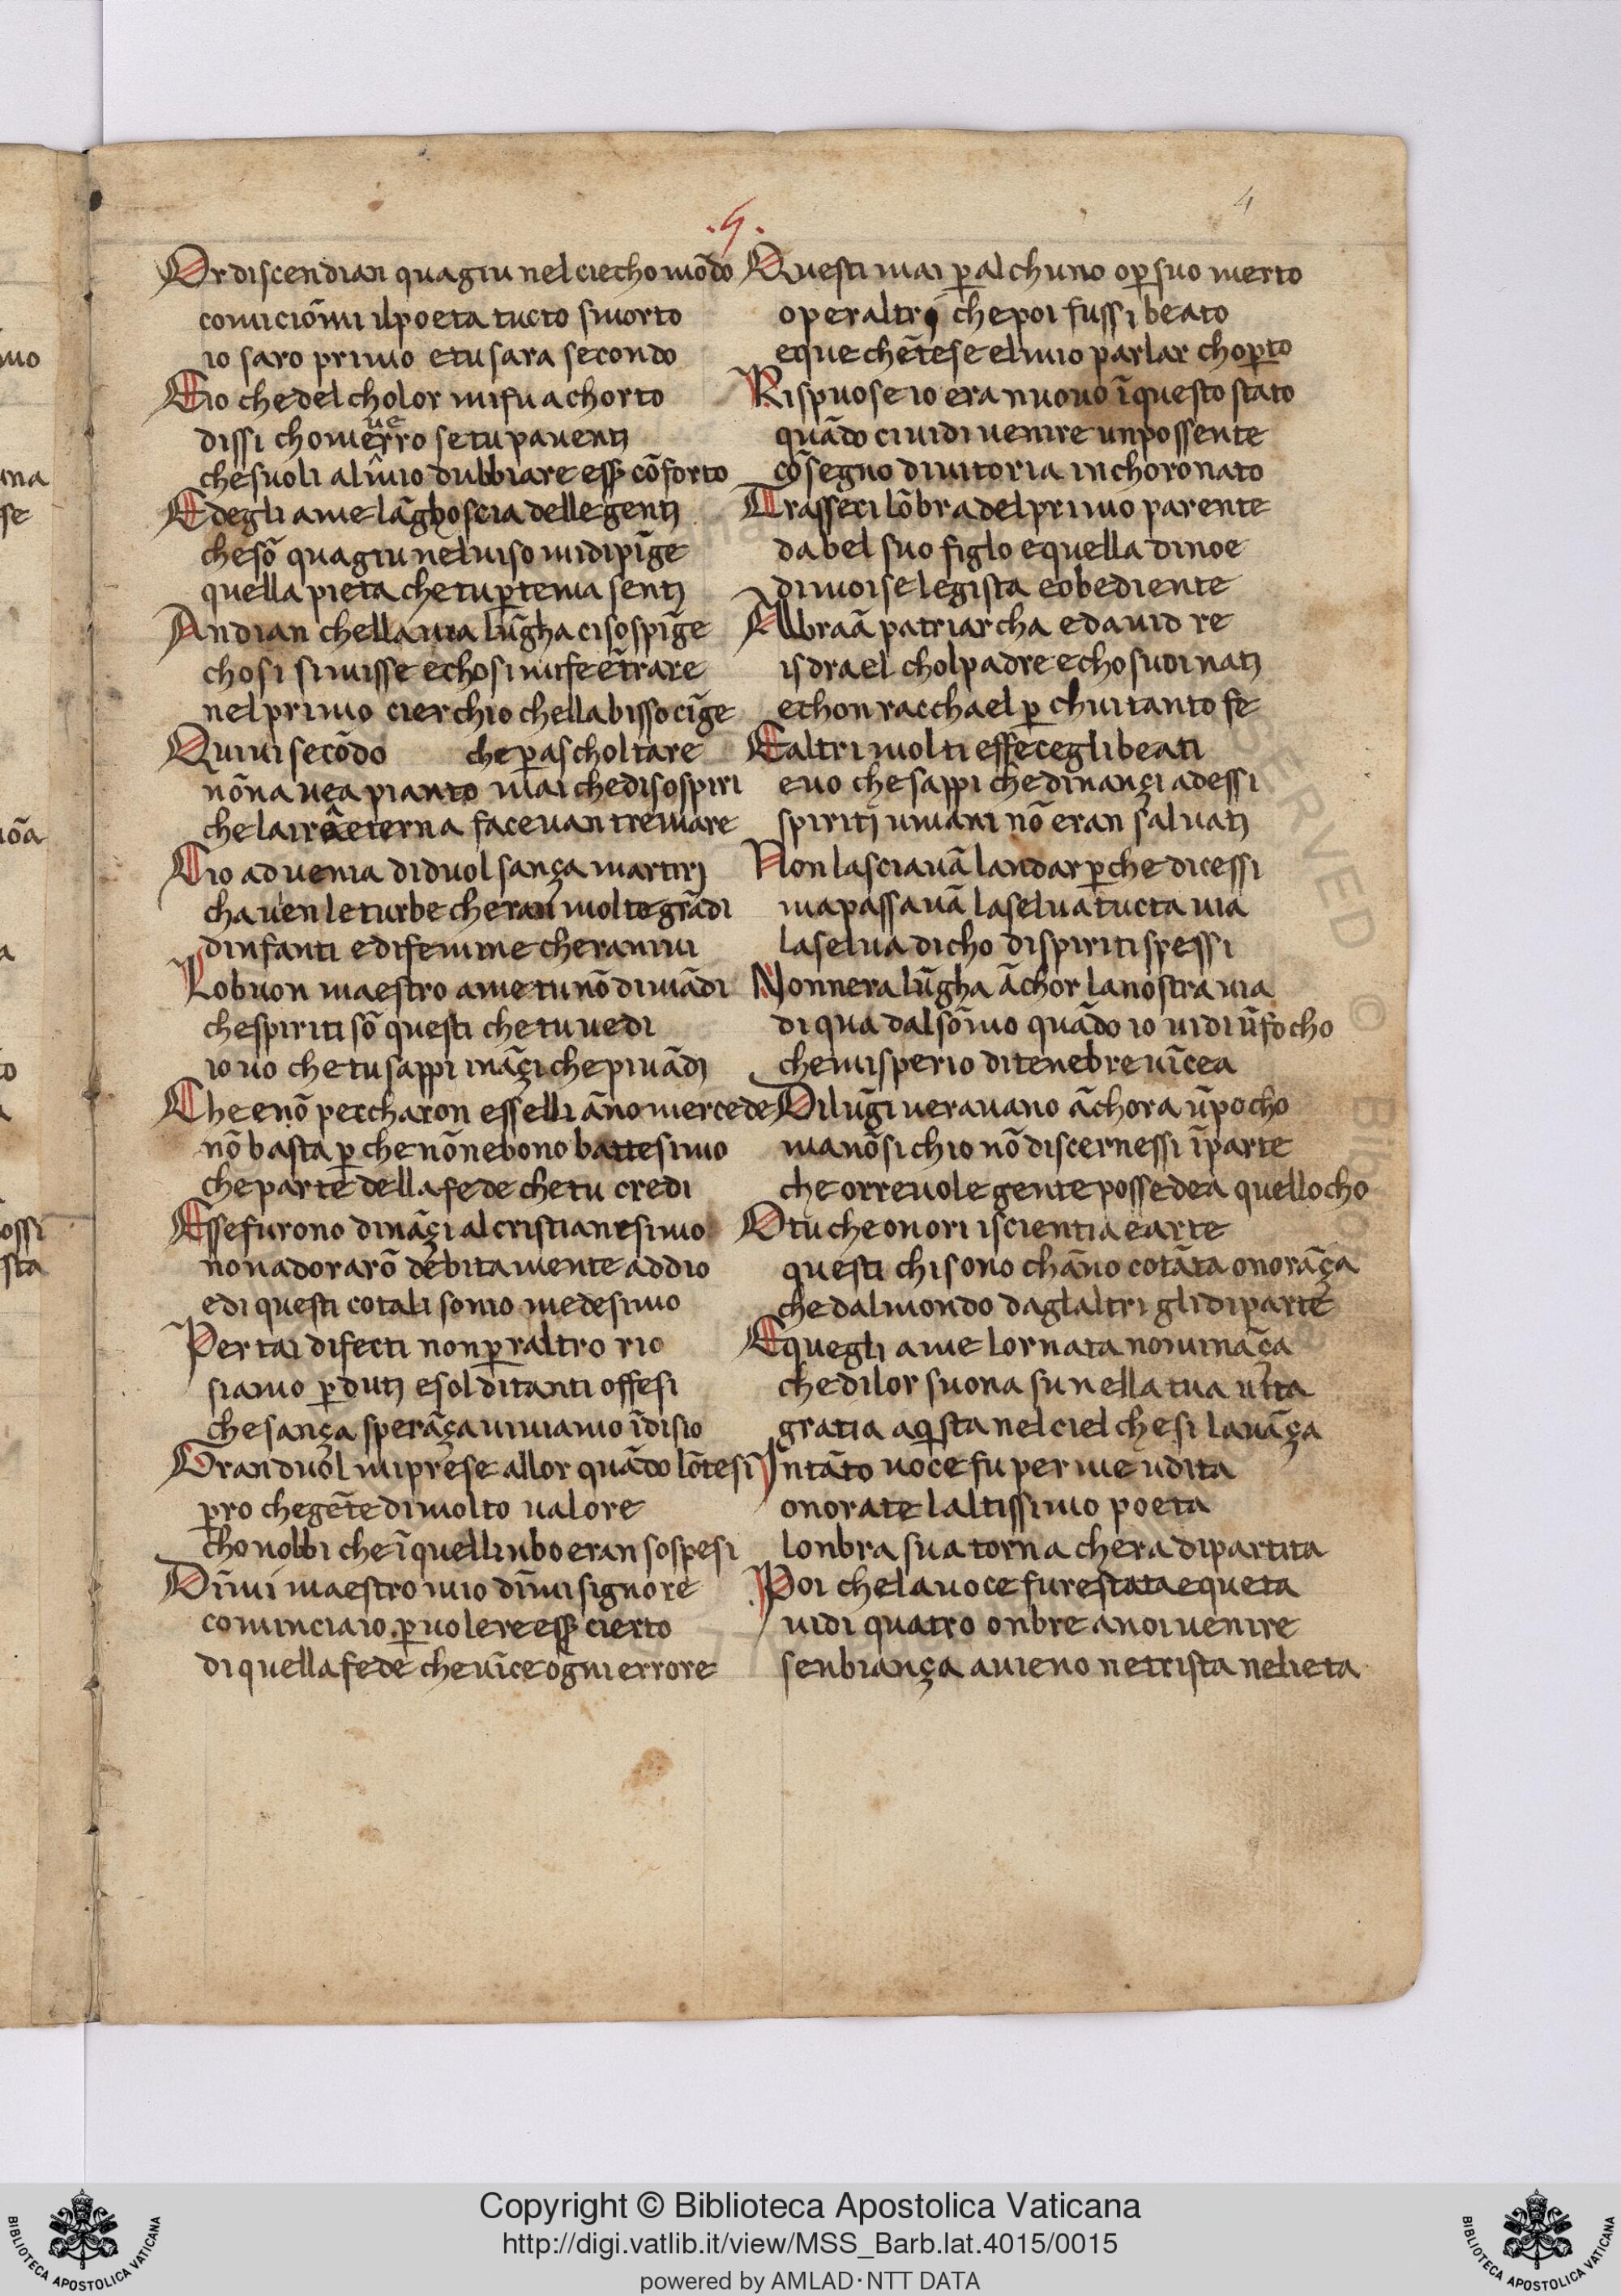 .4.
4
Or discendian quagiu nel ciecho mōdo
comiciōmi il poeta tucto smorto
io saro primo e tu sara secondo
E io che del cholor mi fu achorto
dissi chome uerro se tu pauentj
che suoli al mio dubbiare eẜẜ cōforto
Ed egli a me lāghoscia delle gentj
che sō quagiu nel uiso mi dipīge
quella pieta che tu ꝑ tema sentj
Andian chella uia lūgha ci sospīge
chosi si misse e chosi mi fe ētrare
nel primo cierchio chellabisso cīge
Quiui secōdo che ꝑ ascholtare
nōn auea pianto mai che di sospiri
che laira eterna faceuan tremare
Cio aduenia di duol sança martirj
chauen le turbe cheran molte grādi
dinfanti e di femine cheranuiui
Lo buon maestro a me tu nō dimādi
che spiriti sō questi che tu uedi
io uo che tu sappi ināçi che piu ādj
Che e nō peccharon esselli āno mercede
nō basta ꝑche nōnebono battesimo
che parte della fede che tu credi
Esse furono dināçi al cristianesimo
non adorarō debitamente addio
e di questi cotali sonio medesimo
Per tai difecti non ꝑ raltro rio
siamo ꝑdutj e sol di tanti offesi
che sança sperāça uiuiamo ī disio
Gran duol mi prese allor quādo lōtesi
ꝑro che gēte di molto ualore
chonobbi che ī quellinbo eran sospesi
Dimi maestro mio dīmi signore
cominciaio ꝑ uolere eẜẜ cierto
di quella fede che uīce ogni errore
Questi mai ꝑ alchuno o ꝑ suo merto
o per altrj che poi fussi beato
e que chētese el mio parlar choꝑto
Rispuose io era nuouo ī questo stato
quādo ci uidi uenire un possente
cō segno di uitoria inchoronato
Trasseci lōbra del primo parente
dabel suo figlo e quella di noe
di moise legista e obediente
Abraā patriarcha e dauid re
isdrael chol padre e cho suoi natj
e chon racchael ꝑ chui tanto fe
E altri molti e ffecegli beati
e uo che sappi che dinançi adessi
spiritj umani nō eran saluatj
Non lasciauā landar ꝑche dicessi
ma passauā la selua tucta uia
la selua dicho di spiriti spessi
Nonnera lūgha āchor la nostra uia
di qua dal sōmo quādo io uidi ū focho
chemisperio di tenebre uīcea
Di lūgi uerauano āchora ū pocho
ma nō si chio nō discernessi ī parte
che orreuole gente possedea quello cho
O tu che onori iscientia e arte
questi chi sono chāno cotāta onorāça
che dal mondo daglaltri gli diparte
E quegli a me lornata nomināça
che di lor suona su nella tua uita
gratia aqista nel ciel che si lauāça
Intāto uoce fu per me udita
onorate laltissimo poeta
lonbra sua torna chera dipartita
Poi che la uoce fu restata e queta
uidi quatro onbre a noi uenire
senbiança auieno ne trista ne lieta
Copyright © Biblioteca Apostolica Vaticana
http://digi.vatlib.it/view/MSS_Barb.lat.4015/0015
powered by AMLAD·NTT DATA
BIBLIOTECA APOSTOLICA VATICANA
BIBLIOTECA APOSTOLICA VATICANA